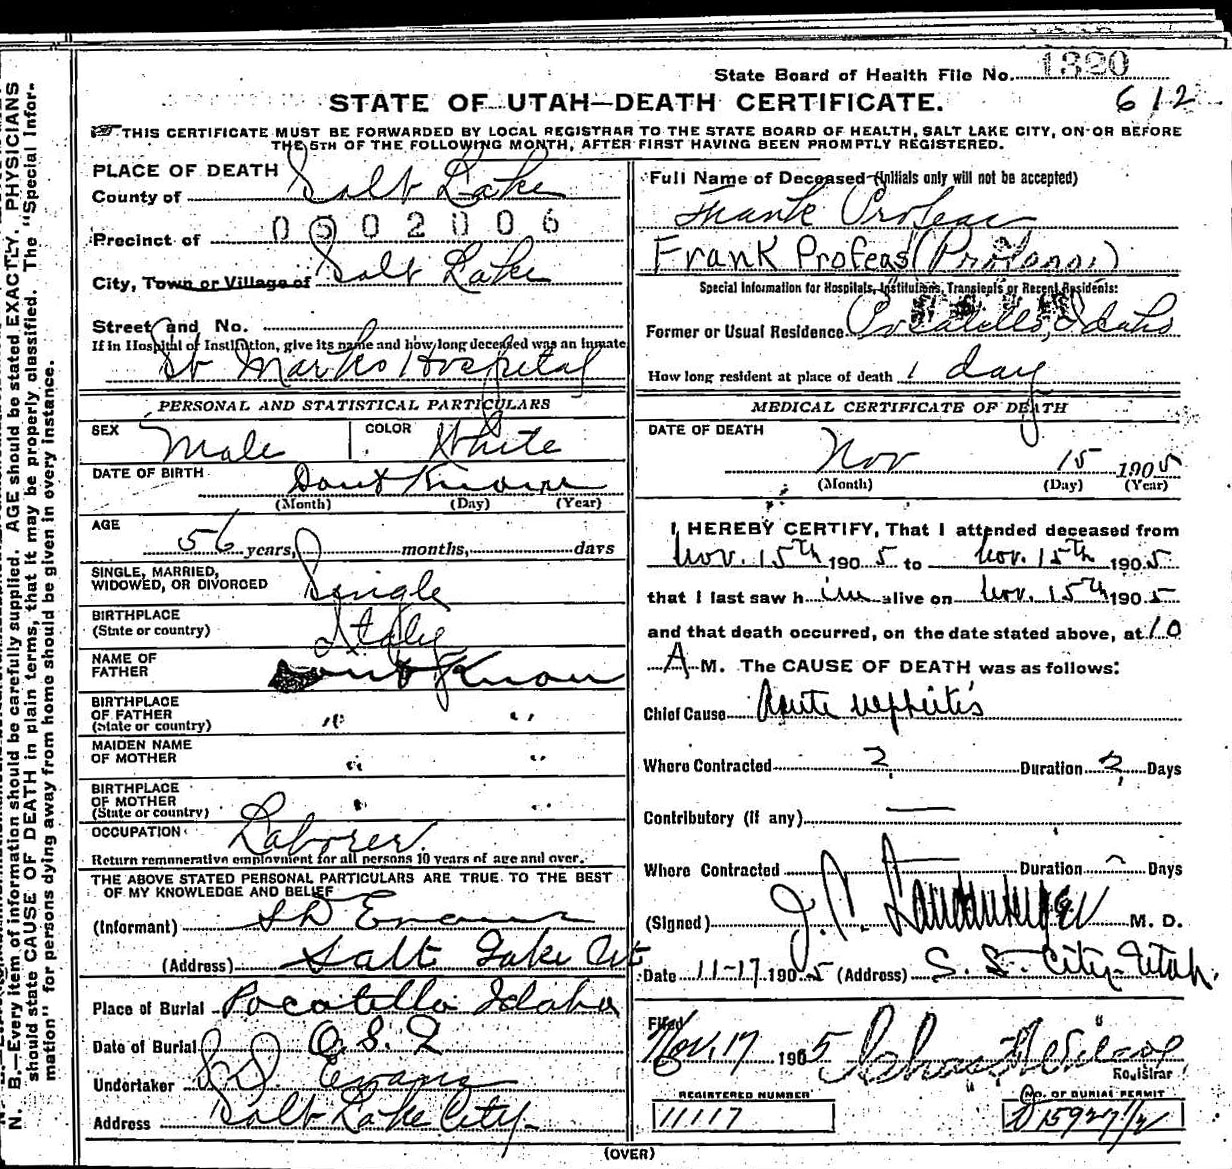 State Board of Health File No. 1320
STATE OF UTAH—DEATH CERTIFICATE.
612
THIS CERTIFICATE MUST BE FORWARDED BY LOCAL REGISTRAR TO THE STATE BOARD OF HEALTH, SALT LAKE CITY, ON OR BEFORE
THE 5TH OF THE FOLLOWING MONTH, AFTER FIRST HAVING BEEN PROMPTLY REGISTERED.
PLACE OF DEATH
County of Salt Lake
Precinct of 0502006
City, Town or Village of Salt Lake
Street and No.
If in Hospital or Institution, give its name and how long deceased was an inmate
St Marks Hospital
PERSONAL AND STATISTICAL PARTICULARS
SEX Male COLOR White
DATE OF BIRTH Dont Know
(Month) (Day) (Year)
AGE
56 years, months, days
SINGLE, MARRIED,
WIDOWED, OR DIVORCED Single
BIRTHPLACE
(State or country) Italy
NAME OF
FATHER Dont Know
BIRTHPLACE
OF FATHER
(State or country) " "
MAIDEN NAME
OF MOTHER " "
BIRTHPLACE
OF MOTHER
(State or country) " "
OCCUPATION Laborer
Return remunerative employment for all persons 10 years of age and over.
THE ABOVE STATED PERSONAL PARTICULARS ARE TRUE TO THE BEST
OF MY KNOWLEDGE AND BELIEF
(Informant) S D Evans
(Address) Salt Lake Ut
Place of Burial Pocatello Idaho
Date of Burial O.S.L
Undertaker S D Evans
Address Salt Lake City
Full Name of Deceased (Initials only will not be accepted)
Frank Profeas
Frank Profeas ( )
Special Information for Hospitals, Institutions, Transients or Recent Residents:
Former or Usual Residence Pocatello, Idaho
How long resident at place of death 1 day
MEDICAL CERTIFICATE OF DEATH
DATE OF DEATH
Nov 15 1905
(Month) (Day) (Year)
I HEREBY CERTIFY, That I attended deceased from
Nov. 15th 1905 to Nov. 15th 1905
that I last saw him alive on Nov. 15th 1905
and that death occurred, on the date stated above, at 10
A M. The CAUSE OF DEATH was as follows:
Chief Cause Acute nephritis
Where Contracted ? Duration ? Days
Contributory (if any) —
Where Contracted — Duration Days
(Signed) J. P. M. D.
Date 11-17 1905 (Address) S. L. City Utah.
Filed
Nov. 17 1905 Chas M Wilcox
Registrar
REGISTERED NUMBER
11117
NO. OF BURIAL PERMIT
D 15927 1/2
(OVER)
N. B.—Every item of information should be carefully supplied. AGE should be stated EXACTLY. PHYSICIANS
should state CAUSE OF DEATH in plain terms, that it may be properly classified. The "Special Infor-
mation" for persons dying away from home should be given in every instance.